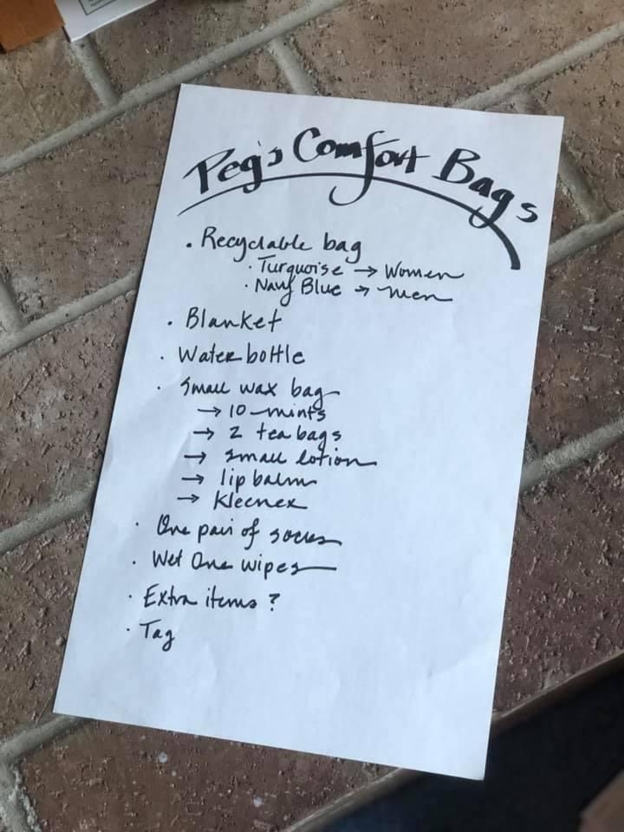 Peg's Comfort Bags
· Recyclable bag
· Turquoise → Women
· Navy Blue → Men
· Blanket
· Water bottle
· Small wax bag
→ 10 mints
→ 2 tea bags
→ small lotion
→ lip balm
→ Kleenex
· One pair of socks
· Wet One wipes
· Extra items ?
· Tag